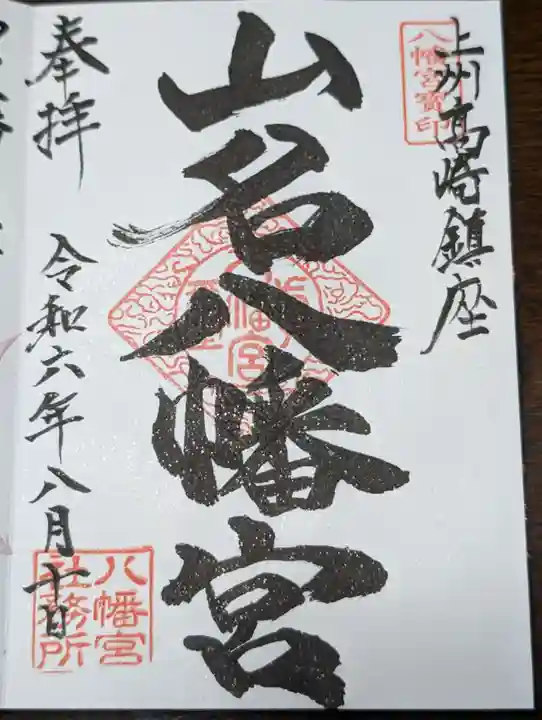 上州高崎鎮座
八幡宮寳印
山名八幡宮
奉拝
令和六年八月十日
八幡宮
社務所